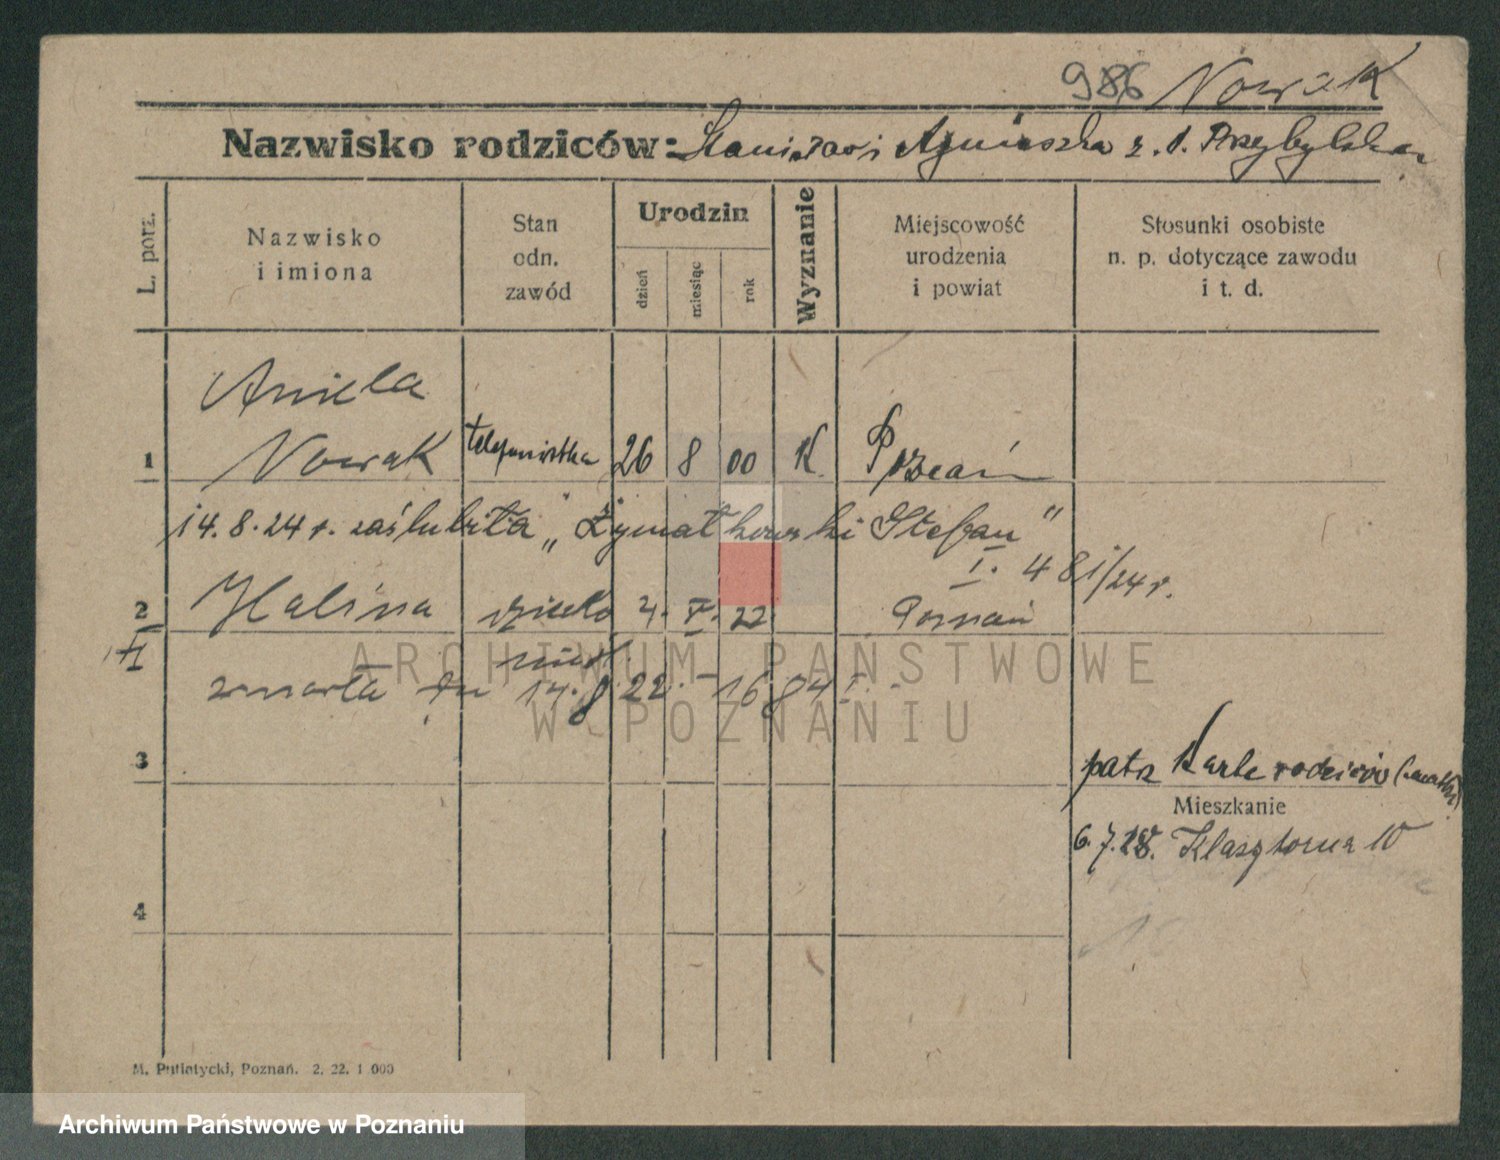 986 Nowak
Nazwisko rodziców: Stanisław i Agnieszka z d. Przybylska
L. porz.
Nazwisko
i imiona
Stan
odn.
zawód
Urodzin
dzień
miesiąc
rok
Wyznanie
Miejscowość
urodzenia
i powiat
Stosunki osobiste
n. p. dotyczące zawodu
i t. d.
Aniela
1 Nowak telefonistka 26 8 00 K Poznań
14.8.24 r. zaślubiła „Żymałkowski Stefan"
I. 481/24 r.
2 Halina dziecko 4. V. 22 Poznań
nieśl.
zmarła dn 14.8 22. – 1684 I.
3
patz Karte rodziców (matki)
Mieszkanie
6.7.28. Klasztorna 10
4
M. Putiatycki, Poznań. 2. 22. 1 000
ARCHIWUM PAŃSTWOWE
W POZNANIU
Archiwum Państwowe w Poznaniu